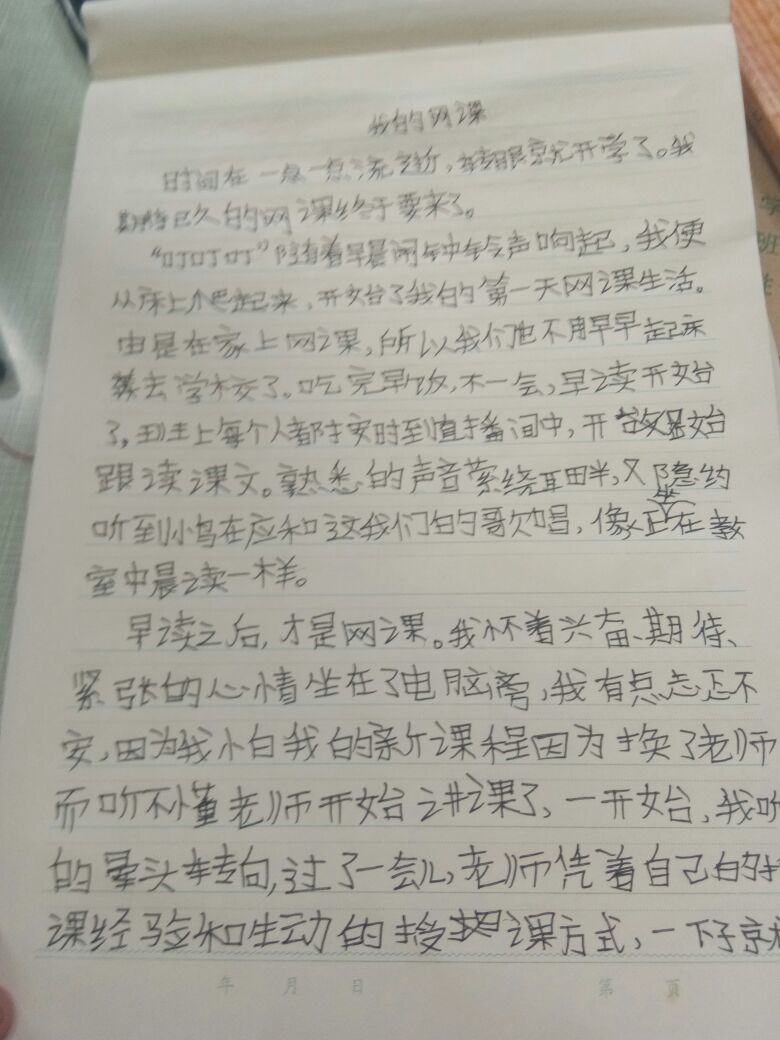 我的网课
时间在一点一点流逝,转眼就开学了。我
期待已久的网课终于要来了。
“叮叮叮”随着早晨闹钟铃声响起,我便
从床上爬起来,开始了我的第一天网课生活。
由是在家上网课,所以我们也不用早早起床
去学校了。吃完早饭,不一会,早读开始
了,班上每个人都按时到直播间中,开始
跟读课文。熟悉的声音萦绕耳畔,又隐约
听到小鸟在应和这我们的歌唱,像坐正在教
室中晨读一样。
早读之后,才是网课。我怀着兴奋、期待、
紧张的心情坐在了电脑旁,我有点忐忑不
安,因为我小白我的新课程因为换了老师
而听不懂老师开始讲课了,一开始,我听
的晕头转向,过了一会儿,老师凭着自己的
课经验和生动的授课方式,一下子就
年 月 日
第 页
学
班
姓